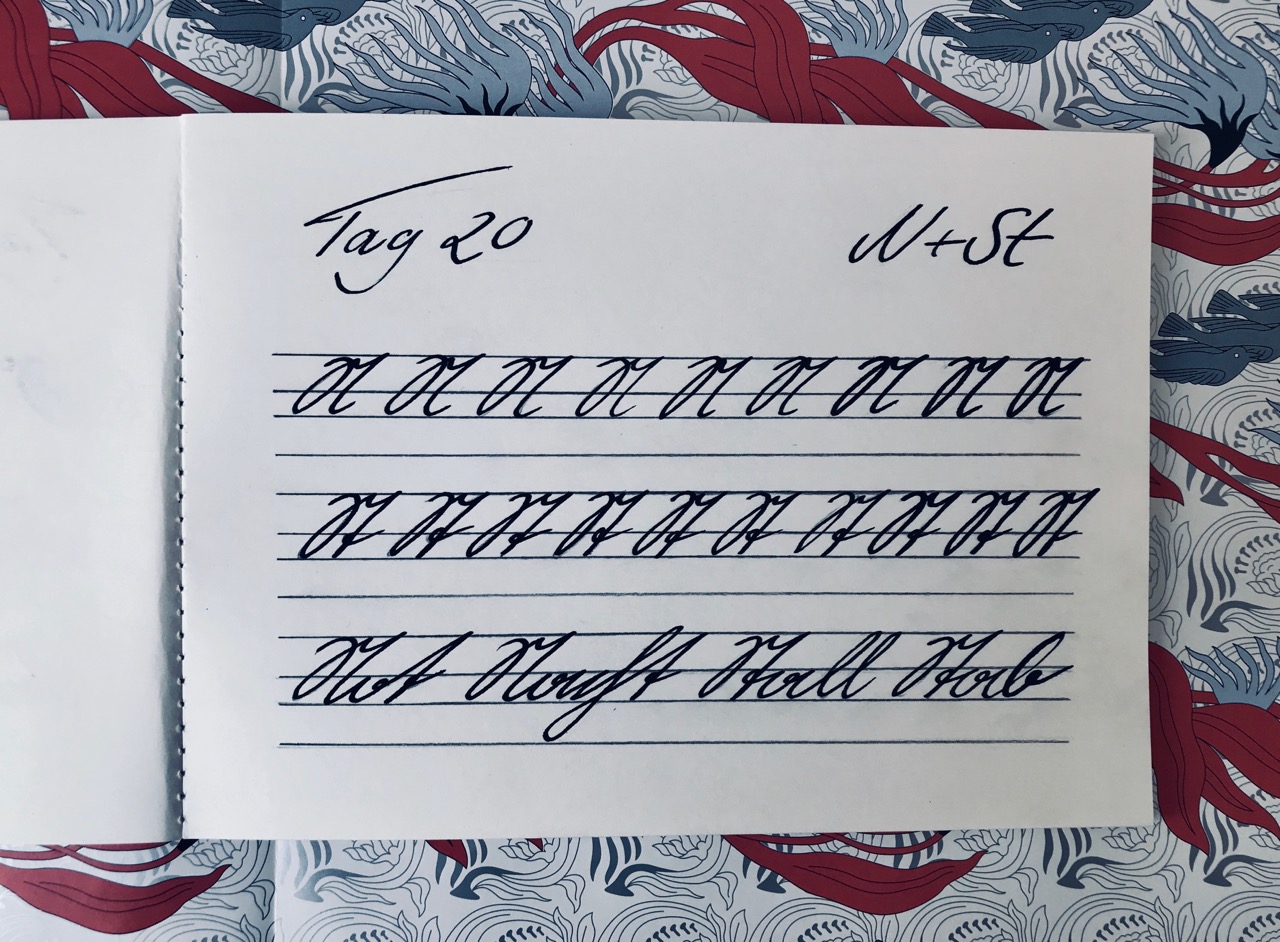 Tag 20
N + St
N N N N N N N N N
St St St St St St St St St St
Not Nacht Stall Stab